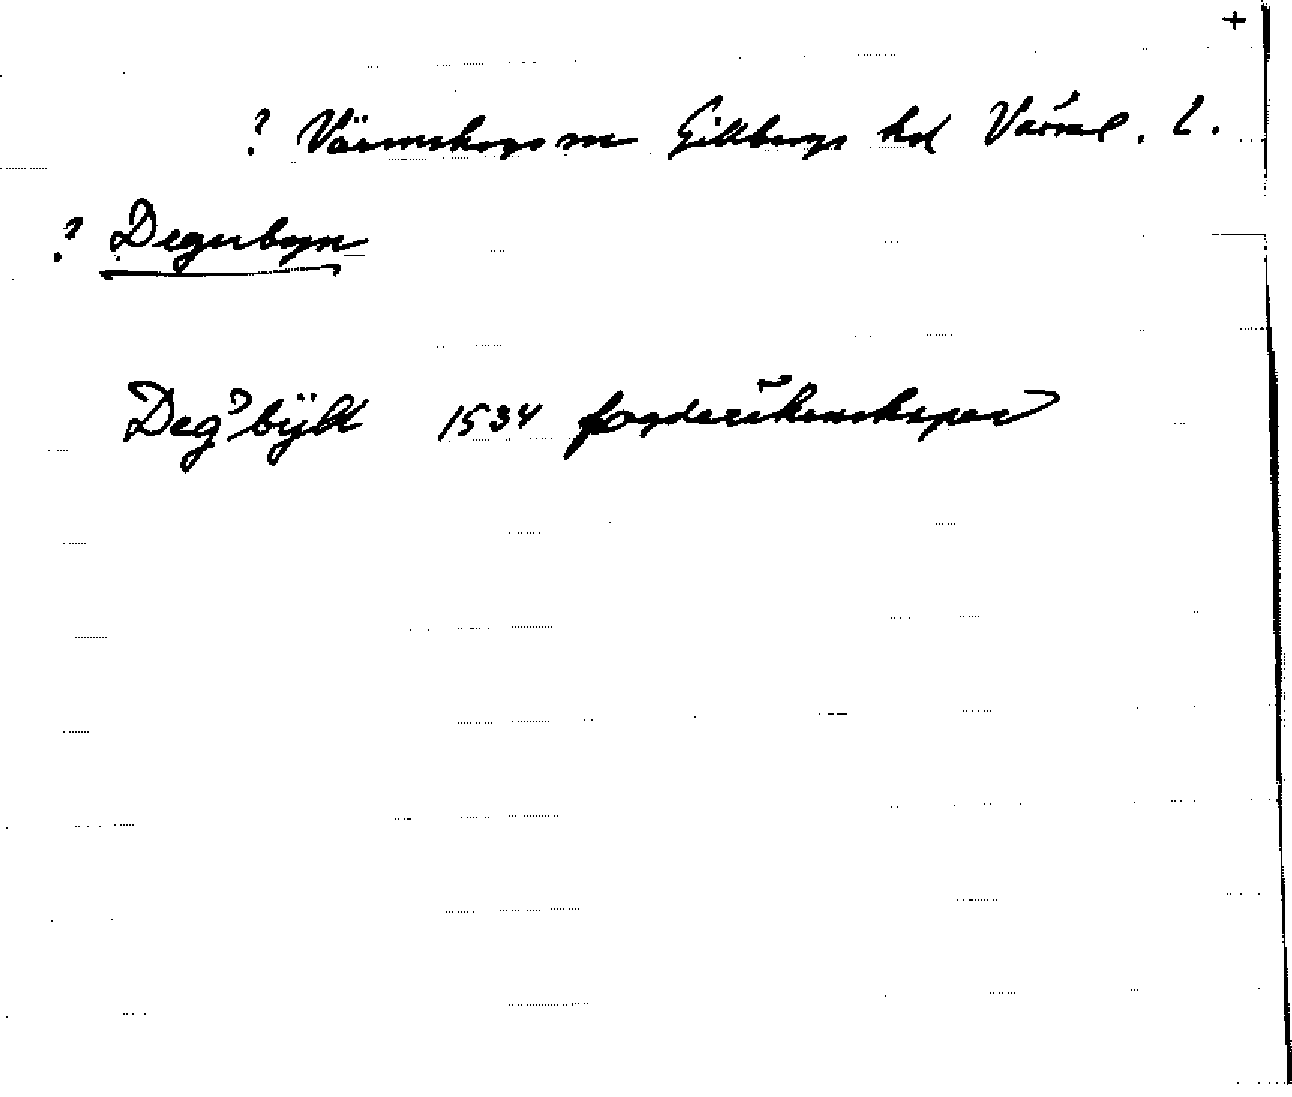 +
? Värmskogs sn Gillbergs hd Värml. l.
? Degerbyn
Deg⁹bÿlt 1534 fogderäkenskaper